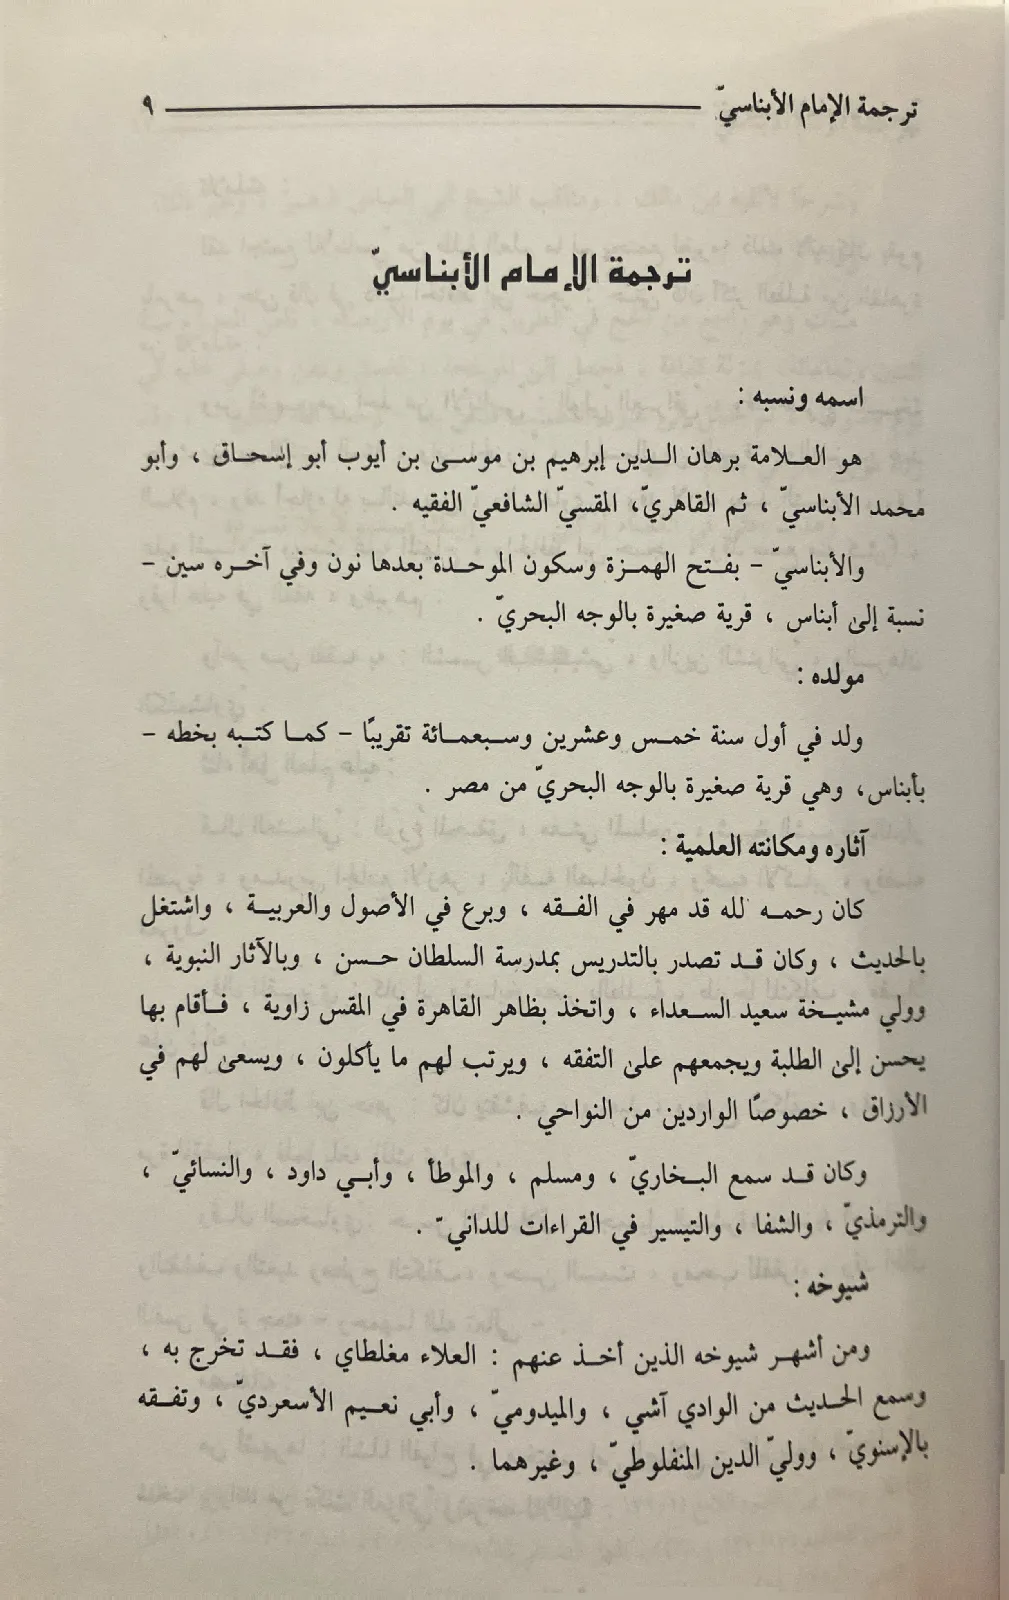 ترجمة الإمام الأبناسيّ ٩
ترجمة الإمام الأبناسيّ
اسمه ونسبه :
هو العلامة برهان الدين إبرهيم بن موسى بن أيوب أبو إسحاق ، وأبو
محمد الأبناسيّ ، ثم القاهريّ، المقسيّ الشافعيّ الفقيه .
والأبناسيّ - بفتح الهمزة وسكون الموحدة بعدها نون وفي آخره سين -
نسبة إلى أبناس ، قرية صغيرة بالوجه البحريّ .
مولده :
ولد في أول سنة خمس وعشرين وسبعمائة تقريبًا - كما كتبه بخطه -
بأبناس، وهي قرية صغيرة بالوجه البحريّ من مصر .
آثاره ومكانته العلمية :
كان رحمه لله قد مهر في الفقه ، وبرع في الأصول والعربية ، واشتغل
بالحديث ، وكان قد تصدر بالتدريس بمدرسة السلطان حسن ، وبالآثار النبوية ،
وولي مشيخة سعيد السعداء ، واتخذ بظاهر القاهرة في المقس زاوية ، فأقام بها
يحسن إلى الطلبة ويجمعهم على التفقه ، ويرتب لهم ما يأكلون ، ويسعى لهم في
الأرزاق ، خصوصًا الواردين من النواحي .
وكان قد سمع البخاريّ ، ومسلم ، والموطأ ، وأبي داود ، والنسائيّ ،
والترمذيّ ، والشفا ، والتيسير في القراءات للدانيّ .
شيوخه :
ومن أشهر شيوخه الذين أخذ عنهم : العلاء مغلطاي ، فقد تخرج به ،
وسمع الحديث من الوادي آشي ، والميدوميّ ، وأبي نعيم الأسعرديّ ، وتفقه
بالإسنويّ ، ووليّ الدين المنفلوطيّ ، وغيرهما .